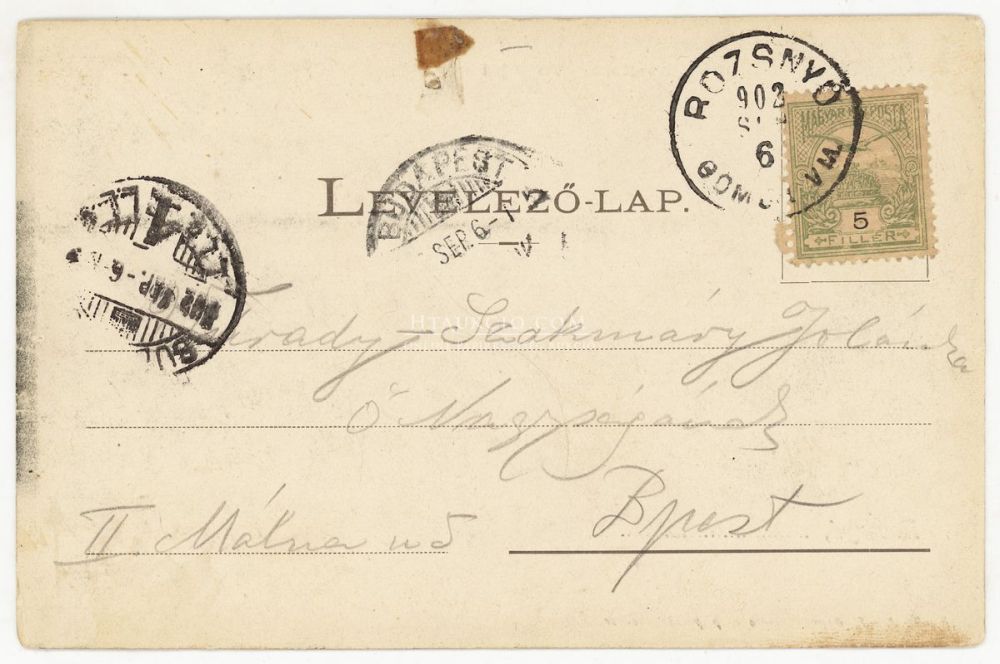 ROZSNYÓ
902
6
GÖMÖR
MAGYAR KIR. POSTA
5
FILLÉR
BUDAPEST
SEP. 6
LEVELEZŐ-LAP.
902 SEP. - 6
Szakmáry Jolánka
Ő Nagyságának
Bpest
II. Málna u 5